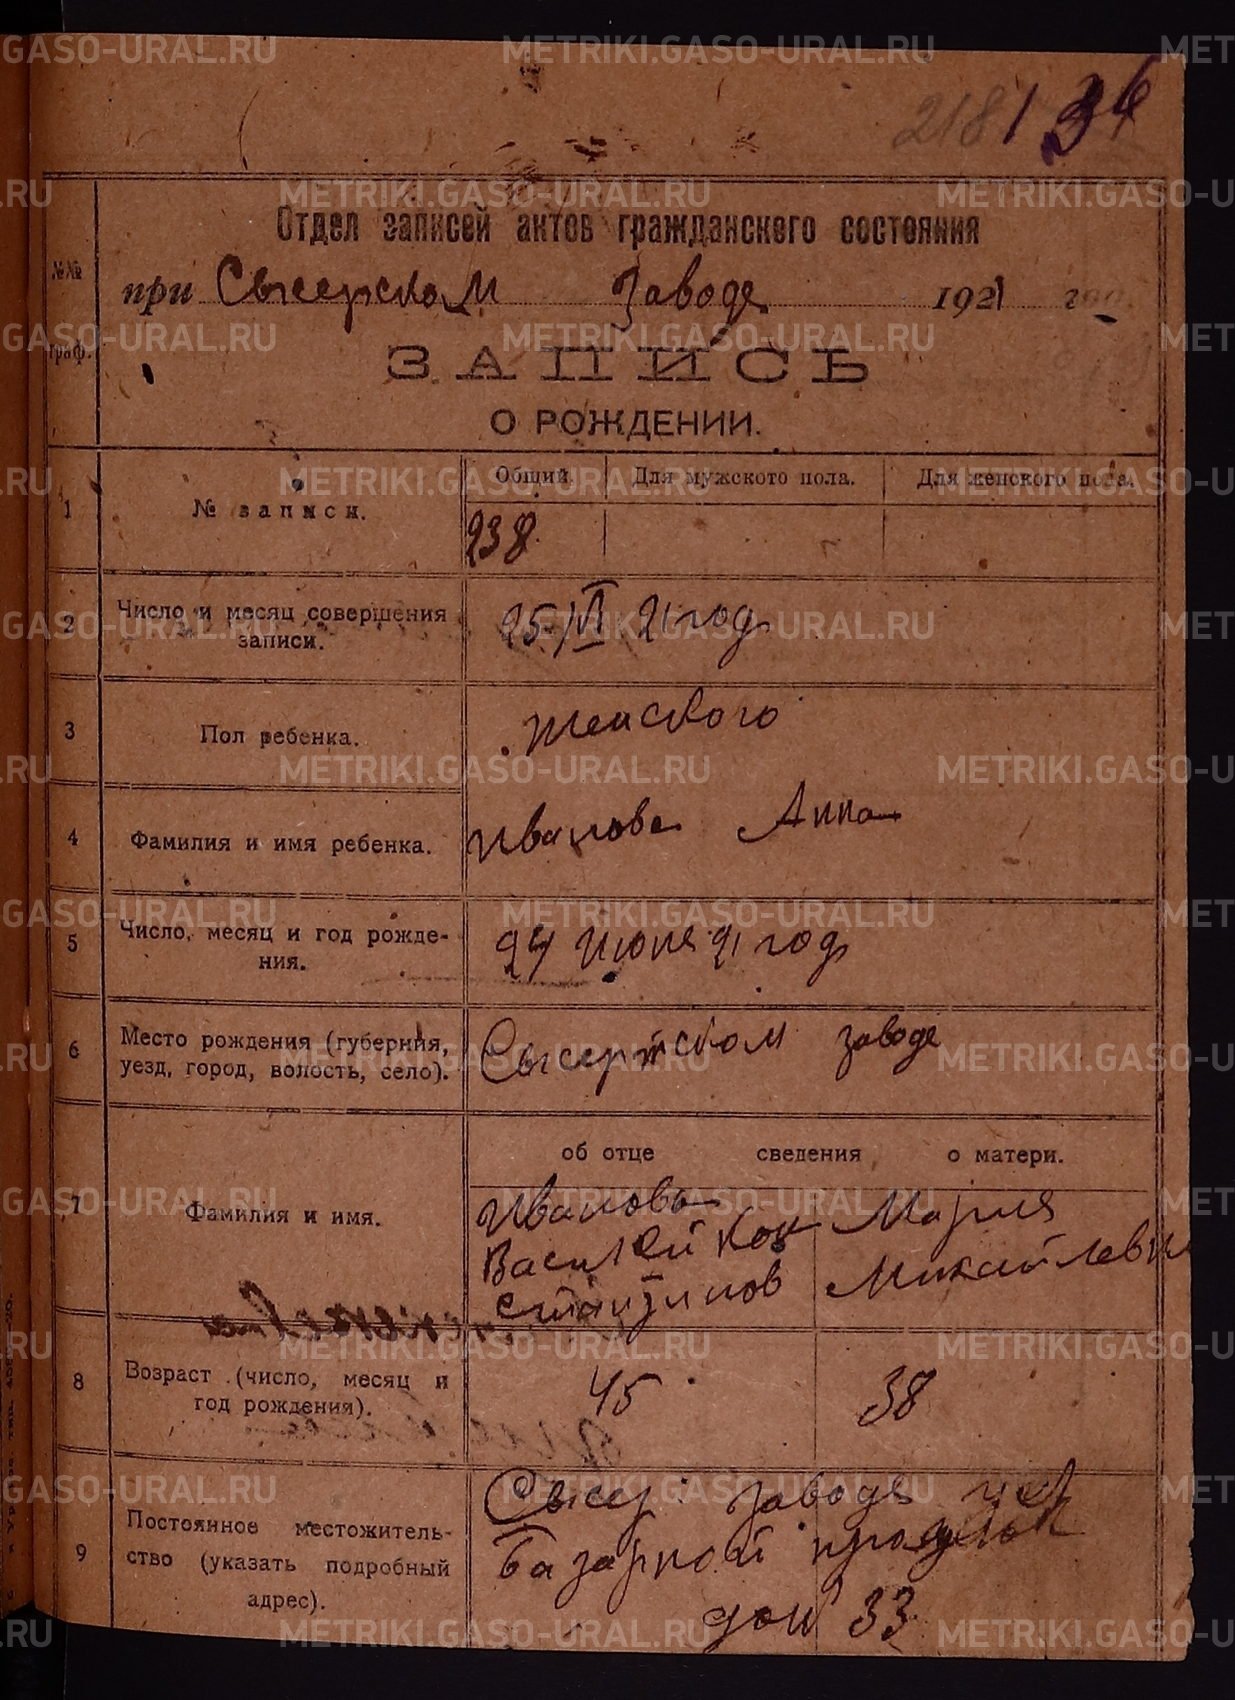 218 / 34
Отдел записей актов гражданского состояния
№№
граф.
при Сысерском Заводе 1921 год.
ЗАПИСЬ
О РОЖДЕНИИ.
1
№ записи.
Общий. Для мужского пола. Для женского пола.
238
2
Число и месяц совершения
записи.
25/VI 21 год
3
Пол ребенка.
женского
4
Фамилия и имя ребенка.
Иванова Анна
5
Число, месяц и год рожде-
ния.
24 июня 21 год
6
Место рождения (губерния,
уезд, город, волость, село).
Сысертском заводе
7
Фамилия и имя.
об отце сведения о матери.
Иванова
Василий Кон
стантинов
Мария
Михайлевн
8
Возраст (число, месяц и
год рождения).
45 38
9
Постоянное местожитель-
ство (указать подробный
адрес).
Сысер: заводе
Базарной
дом 33
METRIKI.GASO-URAL.RU